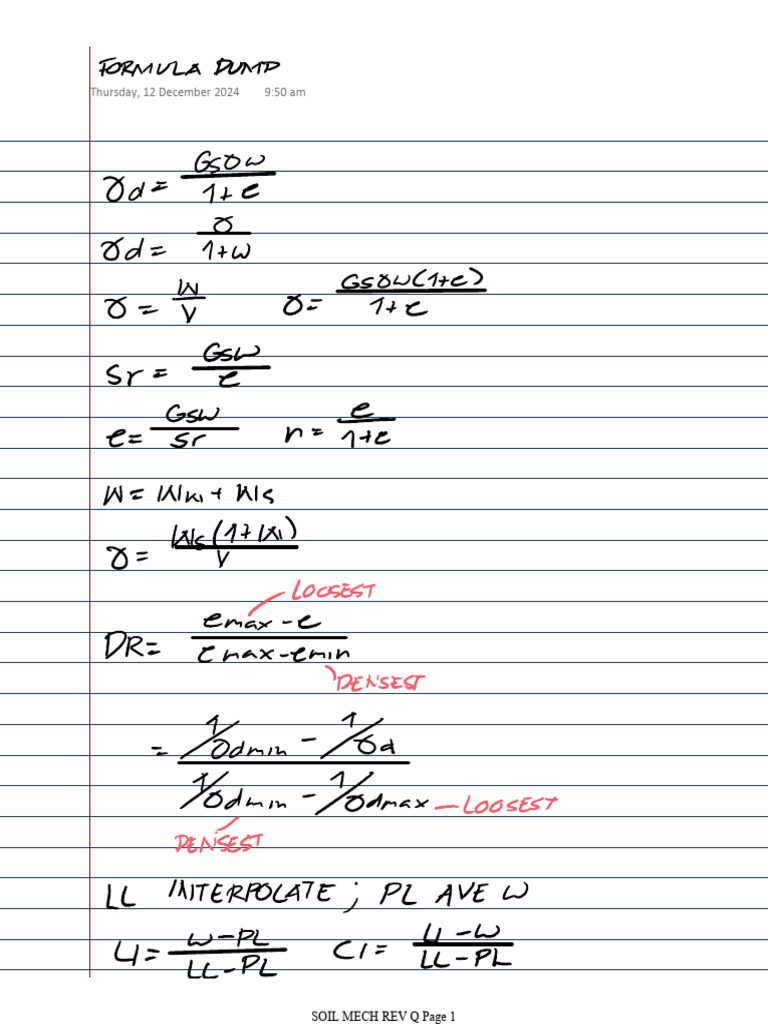 FORMULA DUMP
Thursday, 12 December 2024 9:50 am
γd = Gsγw / 1+e
γd = γ / 1+w
γ = W / V    γ = Gsγw(1+e) / 1+e
Sr = Gsw / e
e = Gsw / Sr    n = e / 1+e
W = Ww + Ws
γ = Ws(1+w) / V
LOOSEST
DR = emax - e / emax - emin
DENSEST
= 1/γdmin - 1/γd / 1/γdmin - 1/γdmax — LOOSEST
DENSEST
LL INTERPOLATE; PL AVE W
LI = w-PL / LL-PL    CI = LL-w / LL-PL
SOIL MECH REV Q Page 1